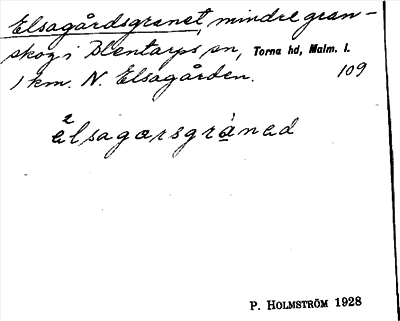 Elsagårdsgranet, mindre gran-
skog i Blentarps sn, Torna hd, Malm. l.
1 km. N. Elsagården. 109
èlsagarsgràned
P. HOLMSTRÖM 1928